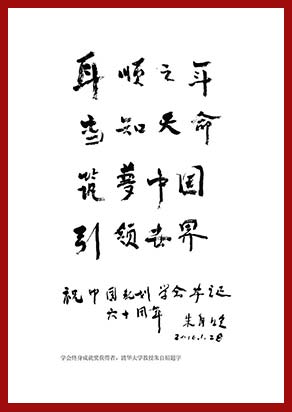 耳顺之年
当知天命
筑夢中国
引领世界
祝中国规划学会华诞
六十周年
朱自煊
2016.1.28
学会终身成就奖获得者，清华大学教授朱自煊题字